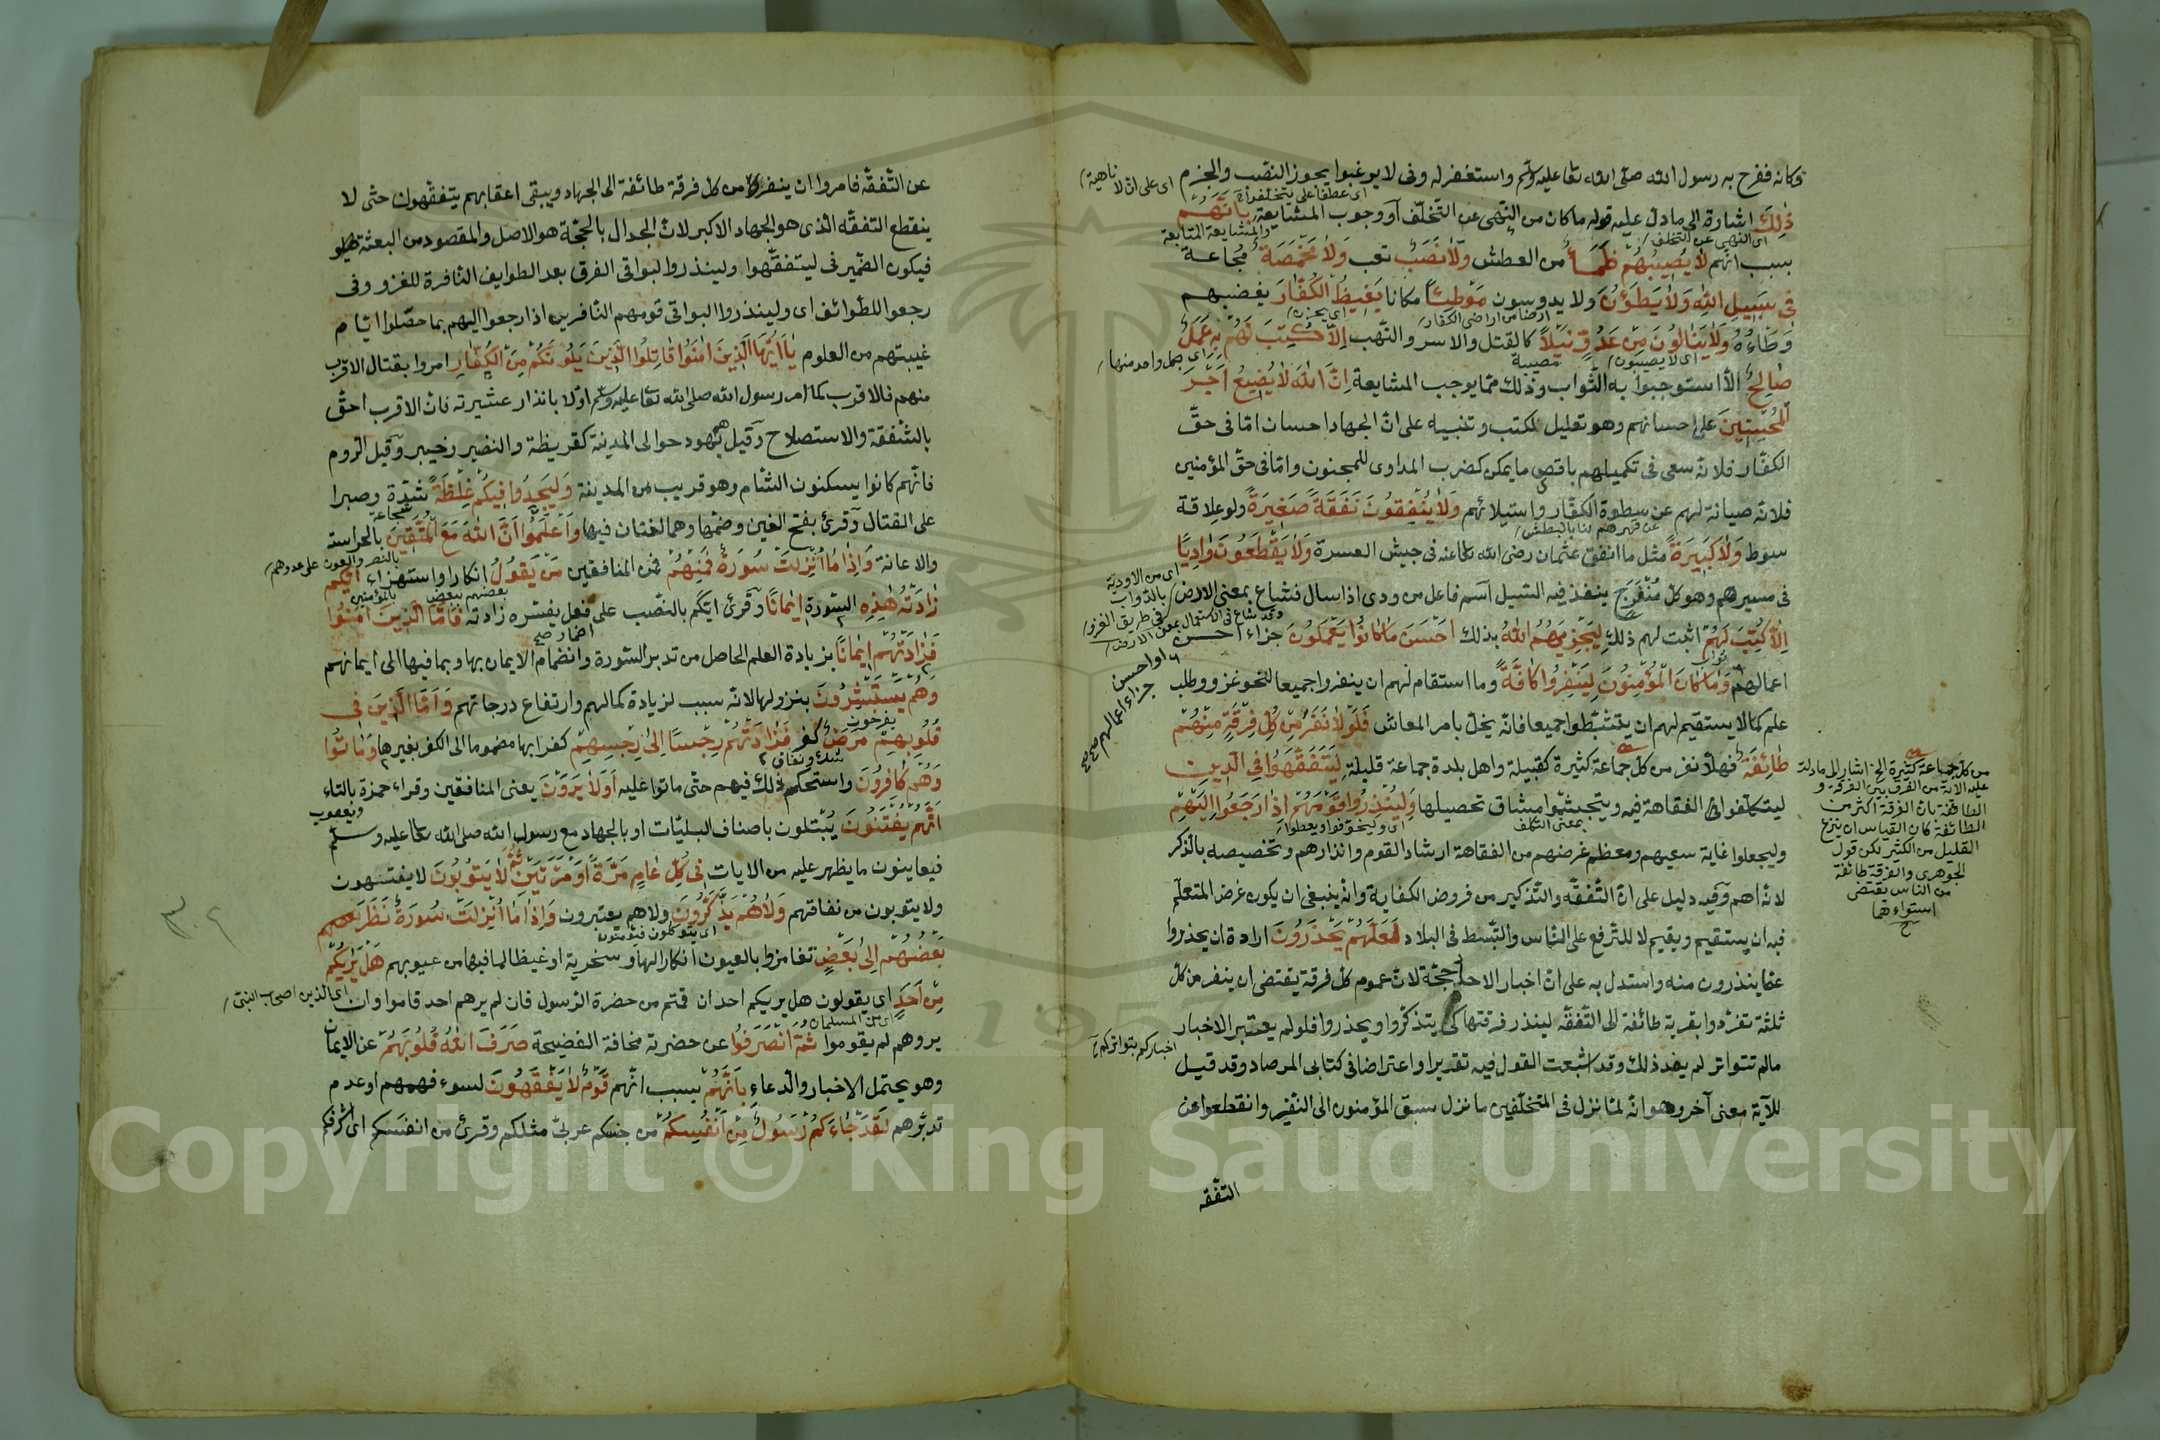 وكانه ففرح به رسول الله صلى الله تعا عليه وسلم واستغفر له وفى لا يرغبوا يجوز النصب والجزم
ذلك اشارة الى ما دل عليه قوله ما كان من النهى عن التخلف او وجوب المشايعة بانهم
بسبب انهم لا يصيبهم ظمأ من العطش ولا نصب تعب ولا مخمصة مجاعة
فى سبيل الله ولا يطؤن ولا يدوسون موطئا مكانا يغيظ الكفار يغضبهم
وطاءه ولا ينالون من عدو نيلا كالقتل والاسر والنهب الا كتب لهم به عمل
صالح الا استوجبوا به الثواب وذلك مما يوجب المشايعة ان الله لا يضيع اجر
المحسنين على احسانهم وهو تعليل لكتب وتنبيه على ان الجهاد احسان اما فى حق
الكفار فلانه سعى فى تكميلهم باقصى ما يمكن كضرب المداوى للمجنون واما فى حق المؤمنين
فلانه صيانة لهم عن سطوة الكفار واستيلائهم ولا ينفقون نفقة صغيرة ولو علاقة
سوط ولا كبيرة مثل ما انفق عثمان رضى الله تعا عنه فى جيش العسرة ولا يقطعون واديا
فى مسيرهم وهو كل منفرج ينفذ فيه السيل اسم فاعل من ودى اذا سال فشاع بمعنى الارض
الا كتب لهم اثبت لهم ذلك ليجزيهم الله بذلك احسن ما كانوا يعملون جزاء احسن
اعمالهم وما كان المؤمنون لينفروا كافة وما استقام لهم ان ينفروا جميعا لنحو غزو وطلب
علم كما لا يستقيم لهم ان يتثبطوا جميعا فانه يخل بامر المعاش فلولا نفر من كل فرقة منهم
طائفة فهلا نفر من كل جماعة كثيرة كقبيلة واهل بلدة جماعة قليلة ليتفقهوا فى الدين
ليتكلفوا الفقاهة فيه ويتجشموا مشاق تحصيلها ولينذروا قومهم اذا رجعوا اليهم
وليجعلوا غاية سعيهم ومعظم غرضهم من الفقاهة ارشاد القوم وانذارهم وتخصيصه بالذكر
لانه اهم وفيه دليل على ان التفقه والتذكير من فروض الكفاية وانه ينبغى ان يكون غرض المتعلم
فيه ان يستقيم ويقيم لا للترفع على الناس والتبسط فى البلاد لعلهم يحذرون ارادة ان يحذروا
عما ينذرون منه واستدل به على ان اخبار الاحاد حجة لان عموم كل فرقة يقتضى ان ينفر من كل
ثلثة تفردوا بقرية طائفة الى التفقه لينذر فرقتها كى يتذكروا ويحذروا فلو لم يعتبر الاخبار
ما لم تتواتر لم يفد ذلك وقد اشبعت القول فيه تقديرا واعتراضا فى كتابى المرصاد وقد قيل
للآية معنى آخر وهو انه لما نزل فى المتخلفين ما نزل سبق المؤمنون الى النفير وانقطعوا عن
التفقه
اى على ان لا ناهية
اى عطفا على يتخلفوا
والمشايعة المتابعة
اى النهى عن التخلف
ارضا من اراضى الكفار
اى لا يصيبون
مصيبة
عن قهرهم لنا بالبطش
اى من الاودية
بالدواب
فى طريق الغزو
او احسن
جزاء اعمالهم صح صح
بمعنى التكلف
من كل جماعة كثيرة الخ اشار الى ما دلت
عليه الآية من الفرق بين الفرقة و
الطائفة بان الفرقة اكثر من
الطائفة كان القياس ان ينزع
القليل من الكثير لكن قول
الجوهرى والفرقة طائفة
من الناس يقتضى
استواءهما
عن التفقه فامروا ان ينفر من كل فرقة طائفة الى الجهاد ويبقى اعقابهم يتفقهون حتى لا
ينقطع التفقه الذى هو الجهاد الاكبر لان الجدال بالحجة هو الاصل والمقصود من البعثة
فيكون الضمير فى ليتفقهوا ولينذروا لبواقى الفرق بعد الطوايف النافرة للغزو وفى
رجعوا للطوائف اى ولينذروا البواقى قومهم النافرين اذا رجعوا اليهم بما حصلوا ايام
غيبتهم من العلوم يا ايها الذين امنوا قاتلوا الذين يلونكم من الكفار امروا بقتال الاقرب
منهم فالاقرب كما امر رسول الله صلى الله تعا عليه وسلم اولا بانذار عشيرته فان الاقرب احق
بالشفقة والاستصلاح وقيل هم يهود حوالى المدينة كقريظة والنضير وخيبر وقيل الروم
فانهم كانوا يسكنون الشام وهو قريب من المدينة وليجدوا فيكم غلظة شدة وصبرا
على القتال وقرئ بفتح الغين وضمها وهما لغتان فيها واعلموا ان الله مع المتقين بالحراسة
والاعانة واذا ما انزلت سورة فمنهم فمن المنافقين من يقول انكارا واستهزاء ايكم
زادته هذه السورة ايمانا وقرئ ايكم بالنصب على فعل يفسره زادته فاما الذين امنوا
فزادتهم ايمانا بزيادة العلم الحاصل من تدبر السورة وانضمام الايمان بها وبما فيها الى ايمانهم
وهم يستبشرون بنزولها لانه سبب لزيادة كمالهم وارتفاع درجاتهم واما الذين فى
قلوبهم مرض كفر فزادتهم رجسا الى رجسهم كفرا بها مضموما الى الكفر بغيرها وماتوا
وهم كافرون واستحكم ذلك فيهم حتى ماتوا عليه اولا يرون يعنى المنافقين وقراء حمزة بالتاء
انهم يفتنون يبتلون باصناف البليات او بالجهاد مع رسول الله صلى الله تعا عليه وسلم
فيعاينون ما يظهر عليه من الايات فى كل عام مرة او مرتين ثم لا يتوبون لا ينتهون
ولا يتوبون من نفاقهم ولا هم يذكرون ولا هم يعتبرون واذا ما انزلت سورة نظر بعضهم
بعضهم الى بعض تغامزوا بالعيون انكارا لها او سخرية او غيظا لما فيها من عيوبهم هل يريكم
من احد اى يقولون هل يريكم احد ان قمتم من حضرة الرسول فان لم يرهم احد قاموا وان
يروهم لم يقوموا ثم انصرفوا عن حضرته مخافة الفضيحة صرف الله قلوبهم عن الايمان
وهو يحتمل الاخبار والدعاء بانهم بسبب انهم قوم لا يفقهون لسوء فهمهم او عدم
تدبرهم لقد جاءكم رسول من انفسكم من جنسكم عربى مثلكم وقرئ من انفسكم اى اشرفكم
شجاعة
بالنصر والعون على عدوهم
بعضهم لبعض
بالمؤمنين
اضمار صح
يفرحون
شك ونفاق
ويعقوب
اى الذين اصحاب النبى
اى من المسلمين
Copyright © King Saud University
1957